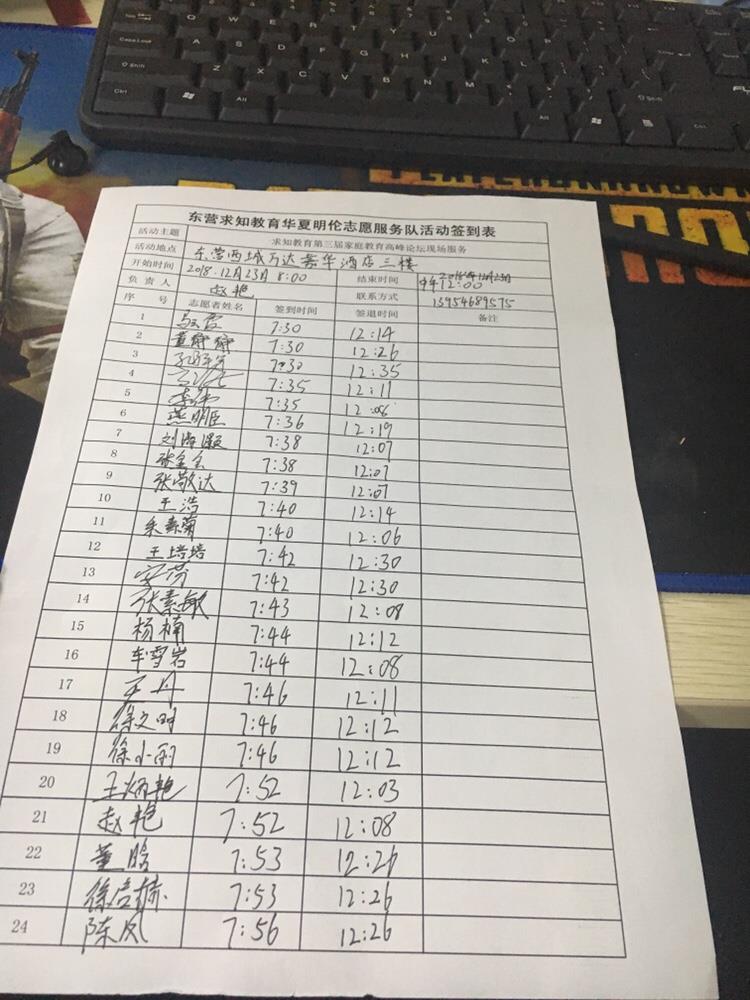 东营求知教育华夏明伦志愿服务队活动签到表
活动主题 求知教育第三届家庭教育高峰论坛现场服务
活动地点 东营西城万达嘉华酒店三楼
开始时间 2018.12月23日 8:00 结束时间 2018年12月23日 中午12:00
负责人 赵艳 联系方式 13954689575
序号 志愿者姓名 签到时间 签退时间 备注
1 马霞 7:30 12:14
2 7:30 12:26
3 7:30 12:35
4 7:35 12:11
5 7:35 12:08
6 燕明臣 7:36 12:19
7 刘 7:38 12:07
8 7:38 12:07
9 张敬达 7:39 12:07
10 王浩 7:40 12:14
11 朱素菊 7:40 12:06
12 王培培 7:42 12:30
13 安芬 7:42 12:30
14 张素敏 7:43 12:08
15 杨楠 7:44 12:12
16 车雪岩 7:44 12:08
17 王丹 7:46 12:11
18 徐文明 7:46 12:12
19 徐小雨 7:46 12:12
20 王炳艳 7:52 12:03
21 赵艳 7:52 12:08
22 董晗 7:53 12:26
23 徐 7:53 12:26
24 陈凤 7:56 12:26
Caps Lock
Shift
Ctrl
Alt
Q W E R T Y U I O P
A S D F G H J K L
Z X C V B N M
Alt
Ctrl
Shift